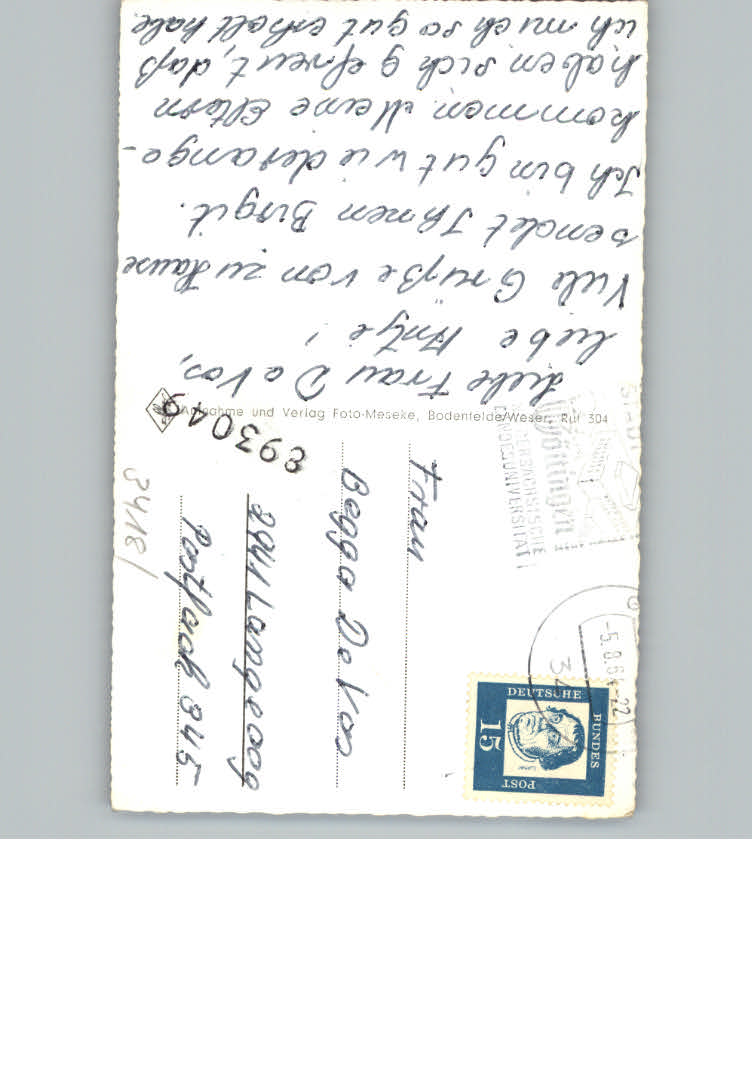 Liebe Frau De Vos,
liebe Antje!
Viele Grüße von zu Hause
sendet Ihnen Birgit.
Ich bin gut wiederange-
kommen Meine Eltern
haben sich gefreut, daß
ich mich so gut erholt habe
Aufnahme und Verlag Foto-Meseke, Bodenfelde/Weser, Ruf 304
893049
3418/
Frau
Begga De Vos
2941 Langeoog
Postfach 345
NIEDERSÄCHSISCHE
LANDESUNIVERSITÄT
Göttingen
34
-5.8.64-22
DEUTSCHE
BUNDES
POST
15
Luther